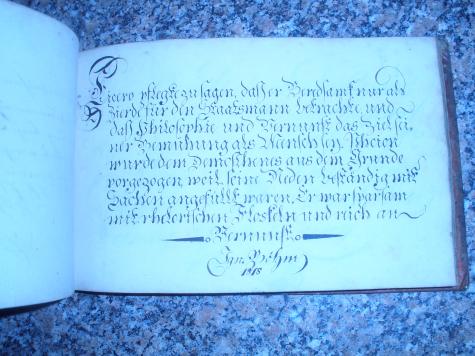 Cicero pflegte zu sagen, daß er Beredsamk. nur als
Zierde für den Staatsmann betrachte und
daß Philosophie und Vernunft das Ziel sei
ner Bemühung als Menschen. Phocion
wurde dem Demosthenes aus dem Grunde
vorgezogen weil seine Reden beständig mit
Sachen angefüllt waren. Er war sparsam
mit rhetorischen Floskeln und reich an
Vernunft
Böhm